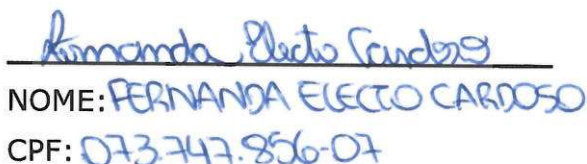 Fernanda Electo Cardoso
NOME: FERNANDA ELECTO CARDOSO
CPF: 073.747.856-07